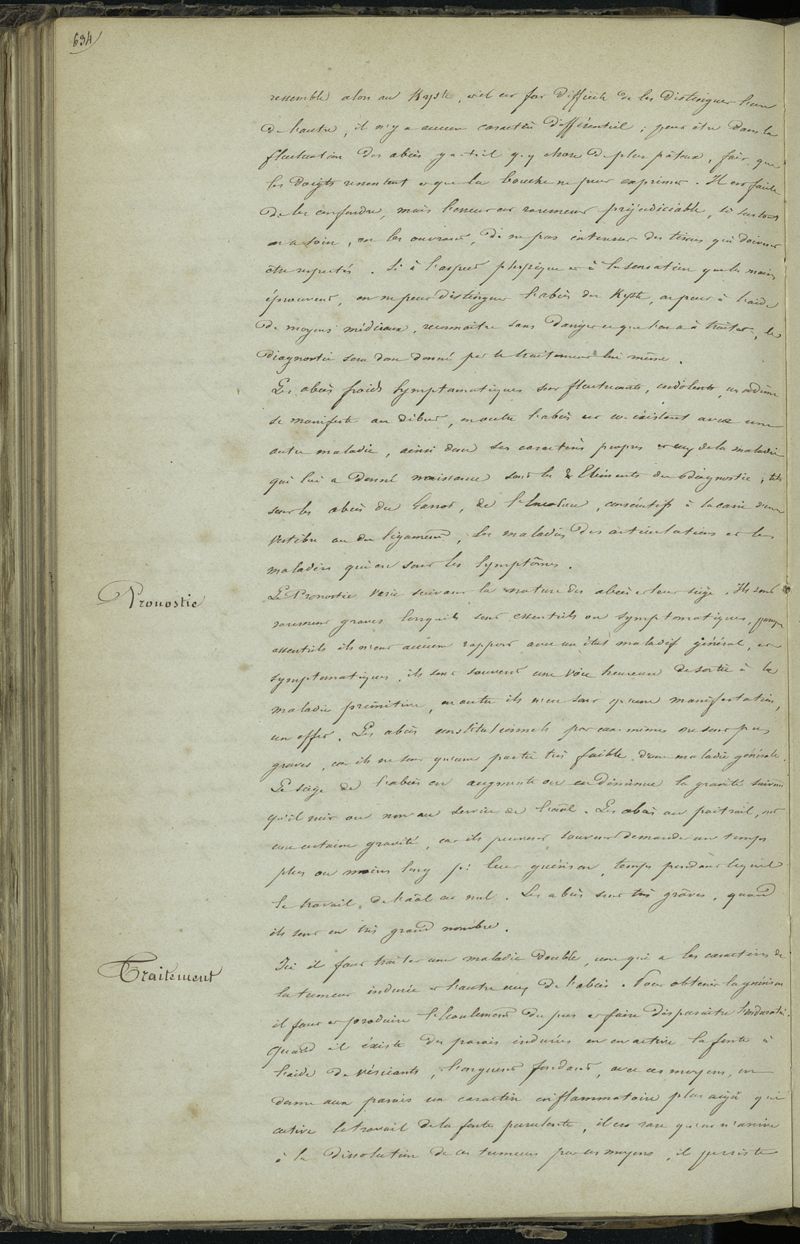 634
ressemble alors au Kyste, il est fort difficile de les distinguer l'un
de l'autre, il n'y a aucun caractère différentiel ; peut être dans la
fluctuation des abcès y a-t-il q.q chose de plus pâteux, fait que
les doigts ressentent et que la bouche ne peut exprimer. Il est facile
de les confondre, mais l'erreur est rarement préjudiciable, si surtout
on a soin, en les ouvrant, de ne pas intéresser des tissus qui doivent
être respectés. Si à l'aspect physique et à la sensation que les mains
éprouvent, on ne peut distinguer l'abcès du Kyste, on peut à l'aide
de moyens médicaux, reconnaître sans danger ce que l'on a à traiter, le
diagnostic sera donc donné par le traitement lui même.
Les abcès froids symptomatiques sont fluctuants, indolents, un œdème
se manifeste au début, en outre l'abcès est co-existant avec une
autre maladie, ainsi donc ses caractères propres et ceux de la maladie
qui lui a donné naissance sont les éléments du diagnostic, tels
sont les abcès du Garrot, de l'encolure, consécutifs à la carie d'une
vertèbre ou du ligament, les maladies des articulations et les
maladies qui en sont les symptômes.
Pronostic
Le Pronostic varie suivant la nature des abcès et leur siège. Ils sont
rarement graves lorsqu'ils sont essentiels ou symptomatiques,
essentiels ils n'ont aucun rapport avec un état maladif général, et
symptomatiques, ils sont souvent une voie heureuse de sortie à la
maladie primitive, en outre ils n'en sont qu'une manifestation,
un effet. Les abcès constitutionnels par eux-mêmes ne sont pas
graves, car ils ne sont qu'une partie très faible d'une maladie générale.
Le siège de l'abcès en augmente ou en diminue la gravité suivant
qu'il nuit ou non au service de l'aal. Les abcès au poitrail, ont
une certaine gravité, car ils peuvent souvent demander un temps
plus ou moins long pr leur guérison, temps pendant lequel
le travail de l'aal est nul. Les abcès sont très graves, quand
ils sont en très grand nombre.
Traitement
Ici il faut traiter une maladie double, une qui a les caractères de
la tumeur indurée et l'autre ceux de l'abcès. Pour obtenir la guérison
il faut et produire l'écoulement du pus et faire disparaître l'induration.
Quand il existe des parois indurées on en active la fonte à
l'aide de vésicants, l'onguent fondant, avec ces moyens, on
donne aux parois un caractère inflammatoire plus aigu qui
active le travail de la fonte purulente, il est rare qu'on n'arrive
à la dissolution de ces tumeurs par ces moyens, il persiste